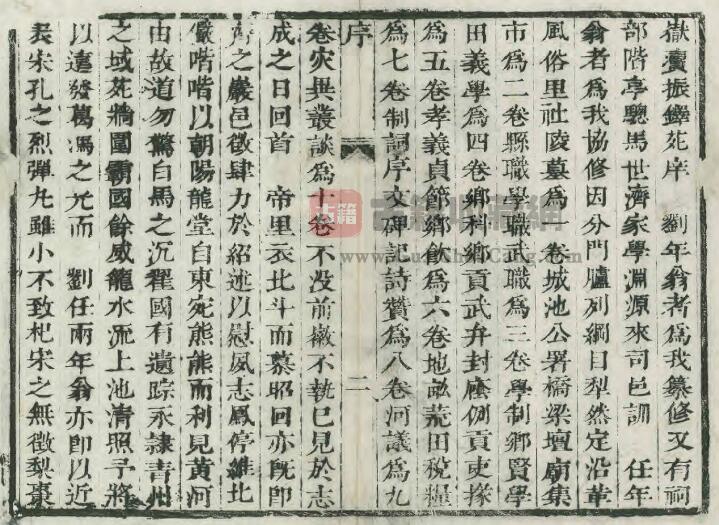 嶽賣振鐸苑岸　劉年翁者爲我纂修又有祠
部階亭驄馬世濟家學淵源來司邑訓　任年
翁者爲我協修因分門臚列綱目犁然定沿革
風俗里社陵墓爲一卷城池公署橋梁壇廟集
市爲二卷縣職學職武職爲三卷學制鄉賢學
田義學爲四卷鄉科鄉貢武弁封廕例貢吏掾
爲五卷孝義貞節鄉飲爲六卷地畝荒田稅糧
爲七卷制詞序文碑記詩贊爲八卷河議爲九
序
二
卷灾異叢談爲十卷不没前徽不執已見於志
成之日回首　帝里衣北斗而慕昭回亦旣卽
之巖邑徵肆力於紹述以慰夙志鳳停維北
喈喈以朝陽龍堂自東宛熊熊而利見黄河
由故道勿驚白馬之沉翟國有遺踪永隸青州
之域苑牆圍霸國餘威龍水流上池清照予將
以遠發萬馮之允而　劉任兩年翁亦卽以近
表朱孔之烈彈丸雖小不致杞宋之無徵梨棗